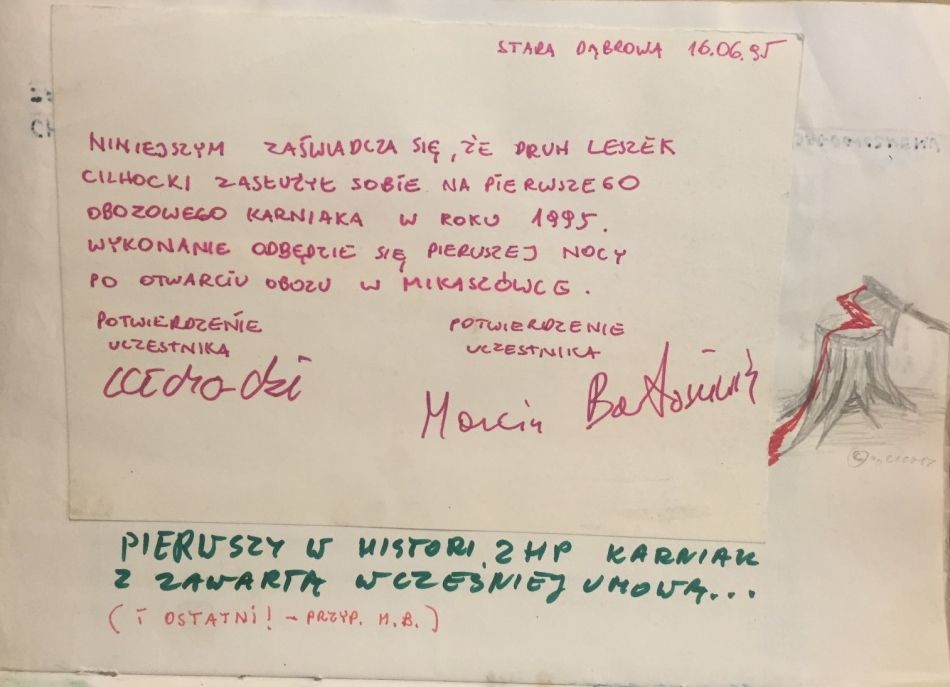 STARA DĄBROWA 16.06.95
NINIEJSZYM ZAŚWIADCZA SIĘ, ŻE DRUH LESZEK
CILHOCKI ZASŁUŻYŁ SOBIE NA PIERWSZEGO
OBOZOWEGO KARNIAKA W ROKU 1995.
WYKONANIE ODBĘDZIE SIĘ PIERWSZEJ NOCY
PO OTWARCIU OBOZU W MIKASZÓWCE.
POTWIERDZENIE POTWIERDZENIE
UCZESTNIKA UCZESTNIKA
Marcin
PIERWSZY W HISTORI ZHP KARNIAK
Z ZAWARTĄ WCZEŚNIEJ UMOWĄ...
(I OSTATNI! - PRZYP. M.B.)